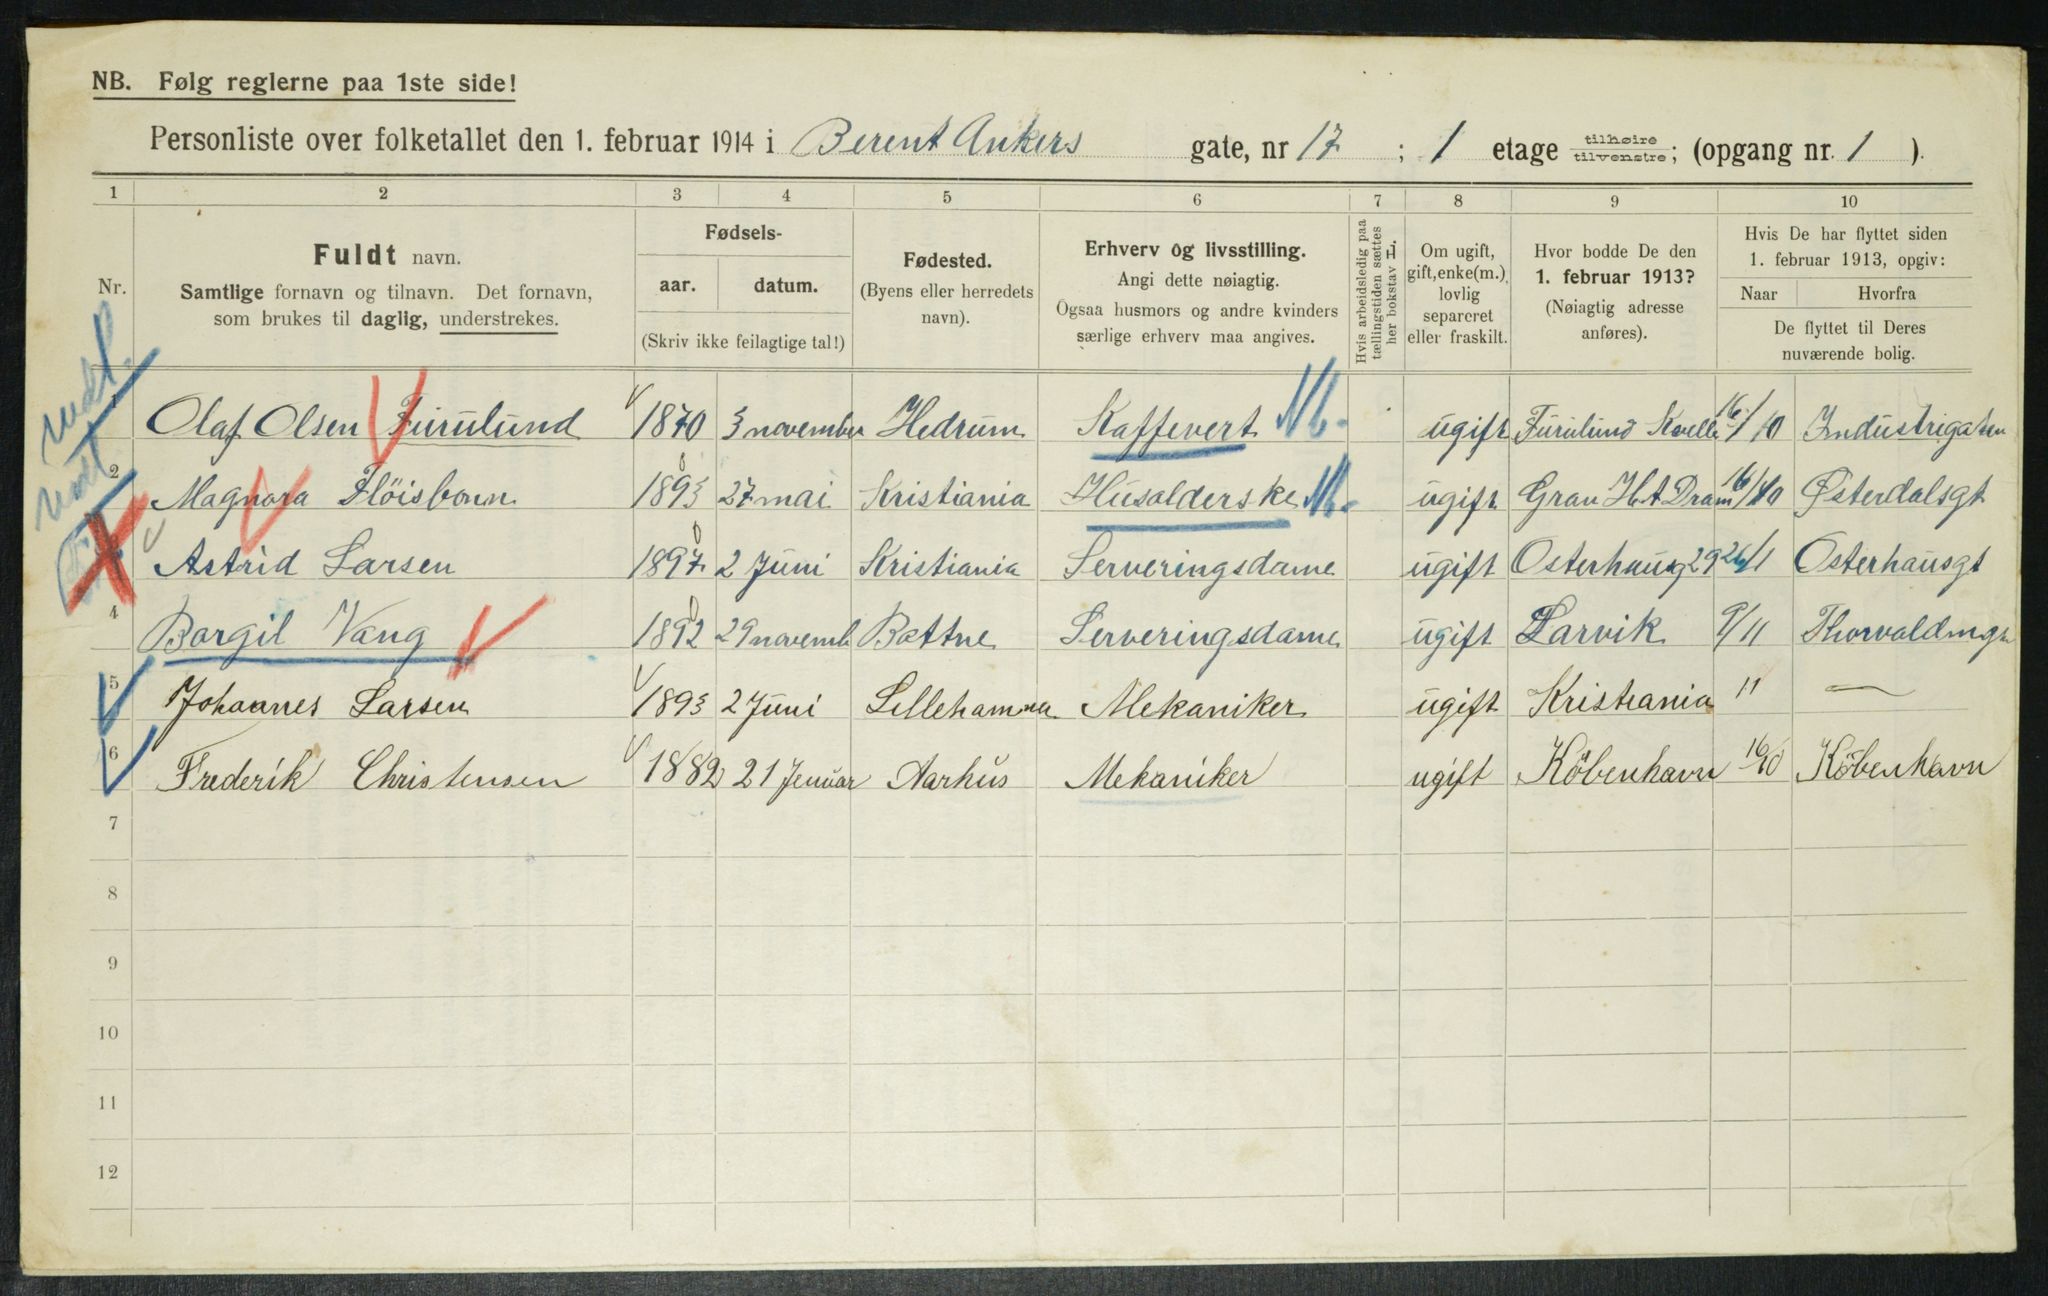 NB. Følg reglerne paa 1ste side!
Personliste over folketallet den 1. februar 1914 i Berent Ankers gate, nr 17 ; 1 etage tilhøire tilvenstre; (opgang nr. 1 ).
1 2 3 4 5 6 7 8 9 10
Nr.
Fuldt navn.
Samtlige fornavn og tilnavn. Det fornavn,
som brukes til daglig, understrekes.
Fødsels-
aar. datum.
(Skriv ikke feilagtige tal!)
Fødested.
(Byens eller herredets
navn).
Erhverv og livsstilling.
Angi dette nøiagtig.
Ogsaa husmors og andre kvinders
særlige erhverv maa angives.
Hvis arbeidsledig paa
tællingstiden sættes
her bokstav L.
Om ugift,
gift, enke(m.),
lovlig
separeret
eller fraskilt.
Hvor bodde De den
1. februar 1913?
(Nøiagtig adresse
anføres).
Hvis De har flyttet siden
1. februar 1913, opgiv:
Naar Hvorfra
De flyttet til Deres
nuværende bolig.
1 Olaf Olsen Furulund 1870 3 november Hedrum Kaffevert Nb. ugift Furulund Kvelle 16/10 Industrigaten
2 Magnora Flöisbonn 1893 27 mai Kristiania Husolderske Nb. ugift Grav H.t Dram 16/10 Østerdalsgt
Astrid Larsen 1897 2 Juni Kristiania Serveringsdame ugift Osterhausg 29 26/1 Osterhausgt
4 Borgil Vang 1892 29 novemb Bottne Serveringsdame ugift Larvik 9/11 Thorvaldmgt
5 Johannes Larsen 1893 2 Juni Lillehammer Mekaniker ugift Kristiania 11 —
6 Frederik Christensen 1882 21 Jenuar Aarhus Mekaniker ugift Köbenhavn 16/10 Köbenhavn
7
8
9
10
11
12